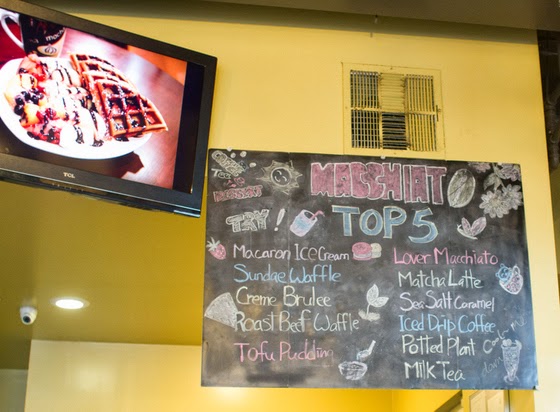 TCL
DESSERT
MACCHIAT
TRY!
TOP 5
Macaron Ice Cream
Sundae Waffle
Creme Brulee
Roast Beef Waffle
Tofu Pudding
Lover Macchiato
Matcha Latte
Sea Salt Caramel
Iced Drip Coffee
Potted Plant
Milk Tea